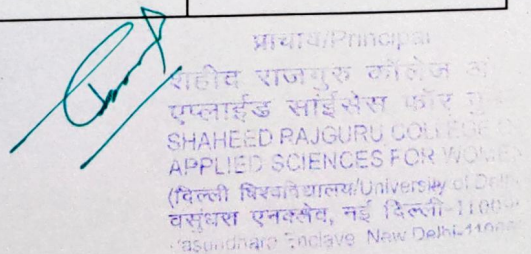 प्राचार्य/Principal
शहीद राजगुरु कॉलेज ऑ
एप्लाईड साईंसेस फॉर
SHAHEED RAJGURU COLLEGE
APPLIED SCIENCES FOR WOME
(दिल्ली विश्वविद्यालय/University of Delh
वसुंधरा एनक्लेव, नई दिल्ली-1100
Vasundhara Enclave New Delhi-1100